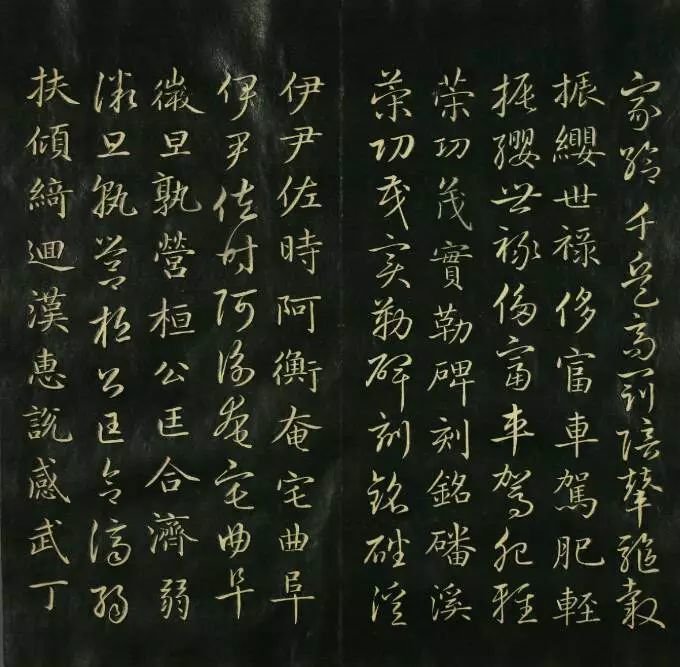 家給千兵高冠陪輦驅轂
振纓世祿侈富車駕肥輕
振纓世祿侈富車駕肥輕
策功茂實勒碑刻銘磻溪
策功茂實勒碑刻銘磻溪
伊尹佐時阿衡奄宅曲阜
伊尹佐時阿衡奄宅曲阜
微旦孰營桓公匡合濟弱
微旦孰營桓公匡合濟弱
扶傾綺迴漢惠說感武丁